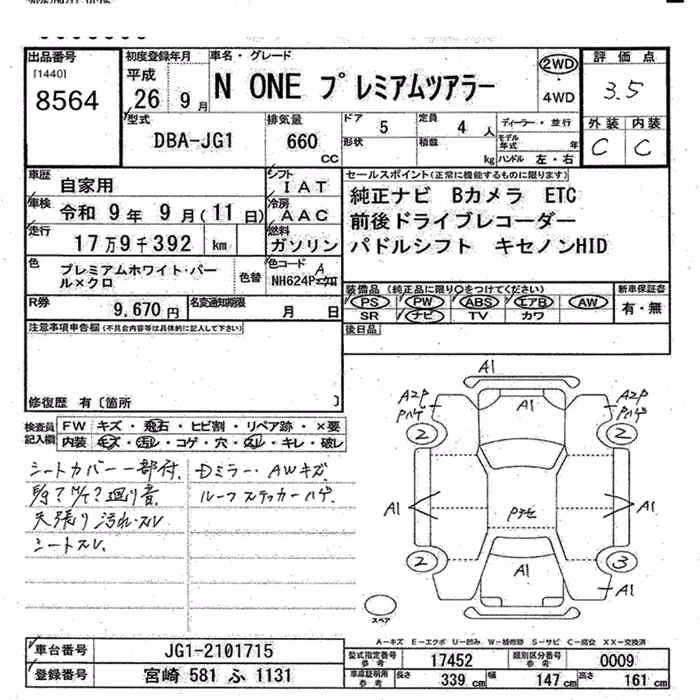 出品番号
[1440]
8564
初度登録年月
平成
26 9 月
車名・グレード
N ONE プレミアムツアラー
2WD
4WD
評価点
3.5
外装 内装
C C
型式
DBA-JG1
排気量
660
CC
ドア
5
定員
4 人
形状
積載
kg
ディーラー・並行
モデル年式 年
ハンドル 左・右
車歴
自家用
シフト
IAT
車検
令和 9 年 9 月(11 日)
冷房
AAC
走行
17万9千392 km
燃料
ガソリン
色
プレミアムホワイト・パール×クロ
色替
色コード
NH624P
A
R券
9,670 円
名変通知期限
月 日
セールスポイント(正常に機能するものに限ります)
純正ナビ Bカメラ ETC
前後ドライブレコーダー
パドルシフト キセノンHID
装備品 (純正品に限り○をつけてください)
PS PW ABS エアB AW
SR ナビ TV カワ
新車保証書
有・無
後日品
注意事項申告欄(不具合内容等は具体的に記入して下さい)
修復歴 有〔箇所 〕
検査員記入欄
FW キズ・飛石・ヒビ割・リペア跡・×要
内装 キズ・汚れ・コゲ・穴・スレ・キレ・破レ
シートカバー一部付.
Dミラー・AWキズ
廻り音
ルーフステッカーハゲ
天張り汚れ・スレ
シートスレ.
A1
A2P
Pハゲ
2
A1
A2P
Pハゲ
2
A1
A1
2
A1
3
A1
スペア
A-キズ E-エクボ U-凹み W-補修跡 S-サビ C-腐食 XX-交換済
車台番号
JG1-2101715
登録番号
宮崎 581 ふ 1131
型式指定番号
参考
17452
類別区分番号
参考
0009
車庫証明用
参考
長さ
339 cm
幅
147 cm
高さ
161 cm